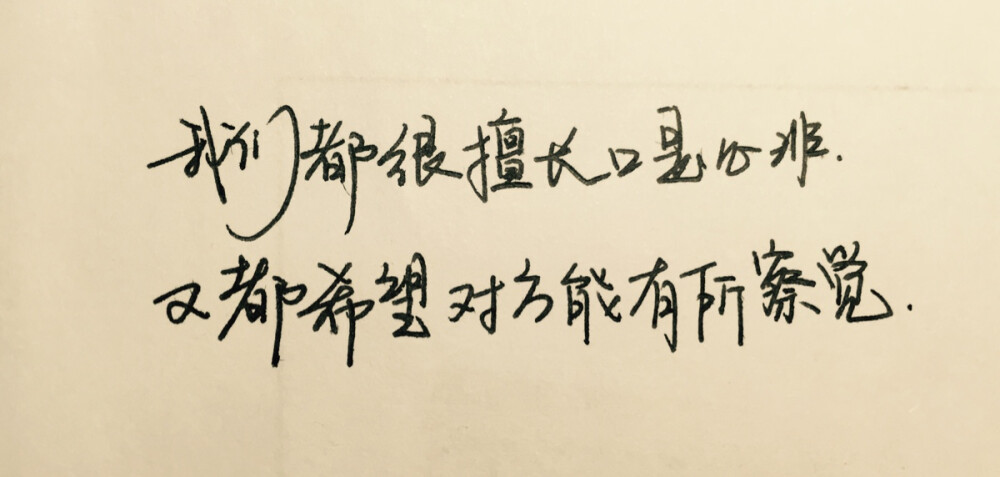 我们都很擅长口是心非.
又都希望对方能有所察觉.